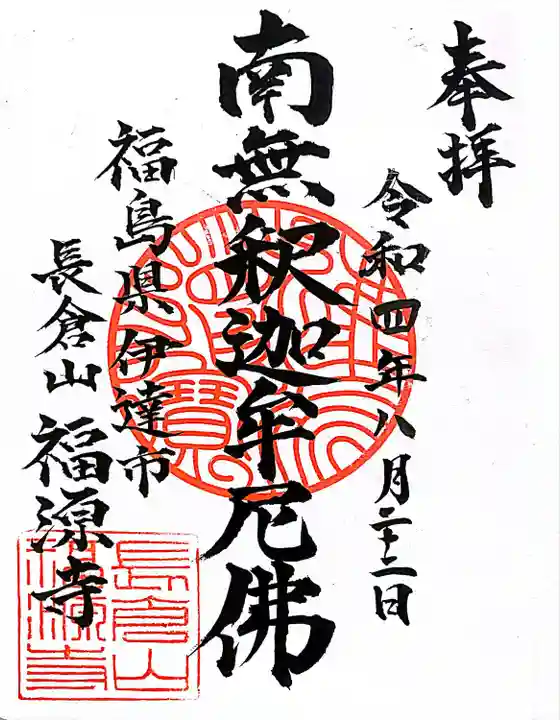 奉拝
令和四年八月二十二日
南無釈迦牟尼佛
福島県伊達市
長倉山福源寺
長倉山
福源寺